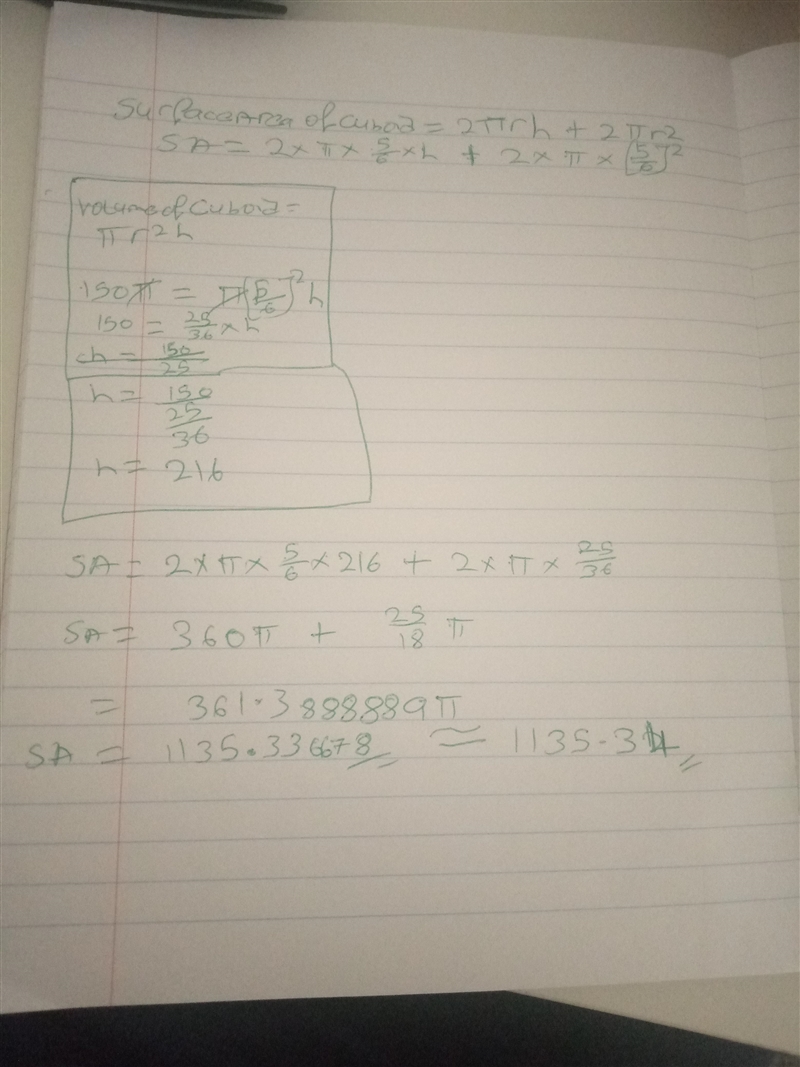 Surface Area of Cuboid = 2πrh + 2πr2
SA = 2 × π × 5/6 × h + 2 × π × (5/6)^2
Volume of Cuboid =
πr2h
150π = π(5/6)^2 h
150 = 25/36 × h
h = 150/25
h = 150/(25/36)
h = 216
SA = 2 × π × 5/6 × 216 + 2 × π × 25/36
SA = 360π + 25/18 π
= 361.3888889π
SA = 1135.336678 ≈ 1135.34